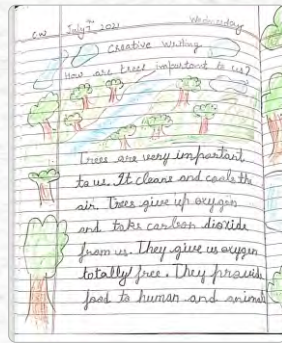 CW July 7th, 2021 Wednesday
Creative Writing
How are trees important to us?
Trees are very important
to us. It cleans and cools the
air. Trees give up oxygen
and take carbon dioxide
from us. They give us oxygen
totally free. They provide
food to human and animal